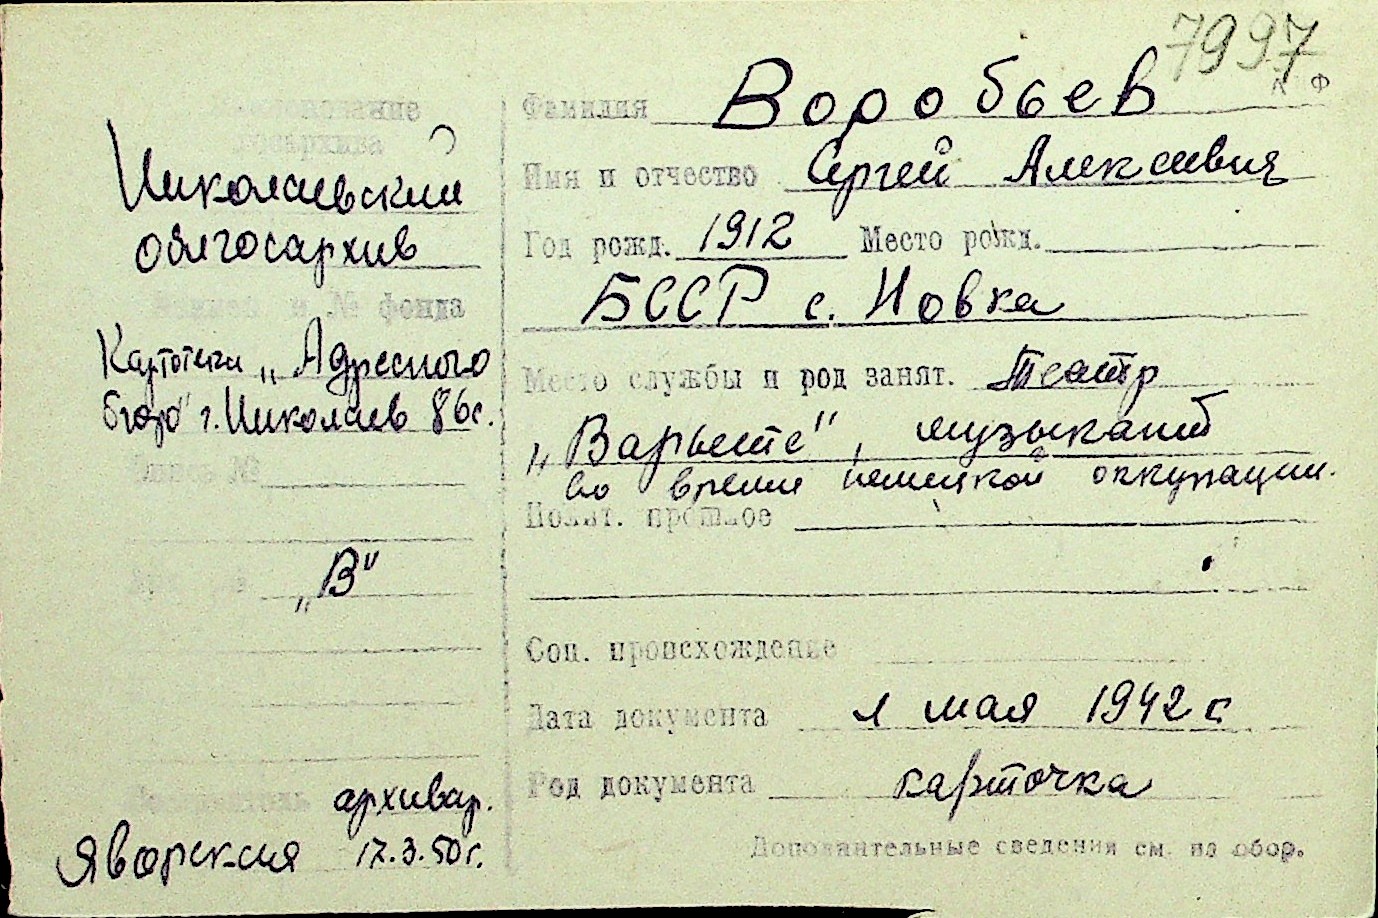 7997
Наименование
госархива
Николаевский
облгосархив
и № фонда
Картотека „Адресного
бюро" г. Николаев 86с.
Опись №
„В"
архивар.
Яворская 17.3.50г.
Фамилия Воробьев
Имя и отчество Сергей Алексеевич
Год рожд. 1912 Место рожд.
БССР с. Новка
Место службы и род занят. Театр
„Варьете", музыкант
во время немецкой оккупации.
Полит. прошлое
Соц. происхождение
Дата документа 1 мая 1942 г
Род документа карточка
Дополнительные сведения см. на обор.